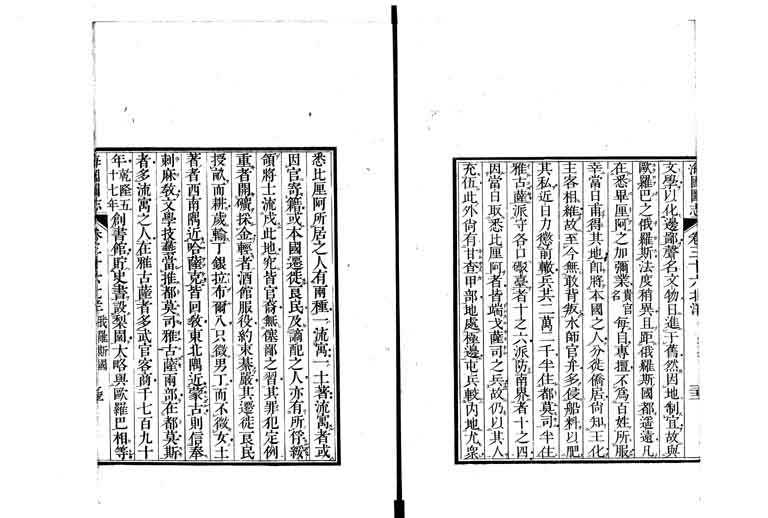 海國圖志 卷三十六北洋
文學以化邊鄙聲名文物日進于舊然因地制宜故與
歐羅巴之俄羅斯法度稍異且距俄羅斯國都遙遠凡
在悉畢厘阿之加彌業貴官名每自專擅不爲百姓所服
幸當日甫得其地卽將本國之人分徙僑居尙知王化
主客相維故至今無敢背叛水師官弁多侵船料以肥
其私近日力懲前轍兵共二萬二千半住都莫司半住
雅古薩派守各口礮臺者十之六派防南界者十之四
因當日取悉比厘阿者皆端戈薩司之兵故仍以其人
充伍此外尙有甘查甲部地處極邊屯兵較內地尤衆
悉比厘阿所居之人有兩種一流寓一土著流寓者或
因官寄籍或本國遷徙良民及謫配之人亦有所俘綏
領將士流戍此地究皆官裔無僿鄙之習其罪犯定例
重者開礦採金輕者酒館服役約束綦嚴其遷徙良民
授畝而耕歲輸丁銀拉布爾八只徵男丁而不徵女土
著者西南隅近哈薩克皆回敎東北隅近蒙古則信奉
剌麻敎文學技藝當推都莫司雅古薩兩部在都莫斯
者多流寓之人在雅古薩者多武官客商千七百九十
年乾隆五十七年創書館貯史書設梨園大略與歐羅巴相等
海國圖志 卷三十六 俄羅斯國